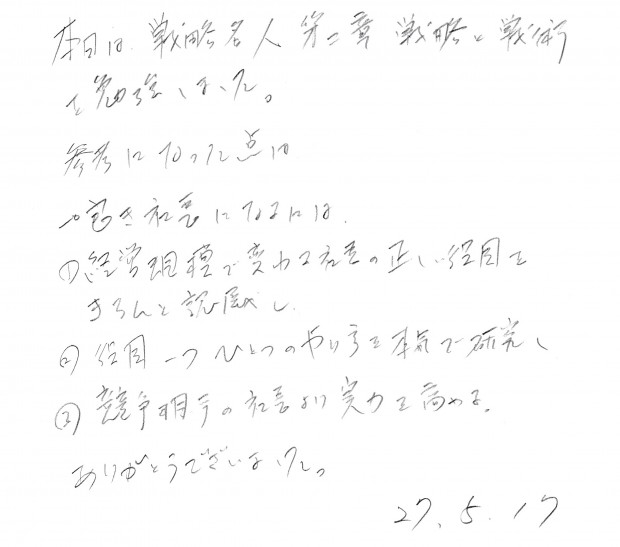 本日は、戦略名人 第二章 戦略と戦術
を勉強しました。
参考になった点は
良き社長になるには、
①経営規模で変わる社長の正しい役目を
きちんと認識し
② 役目一つひとつのやり方を本気で研究し
③ 競争相手の社長より実力を高める。
ありがとうございました。
27.5.17